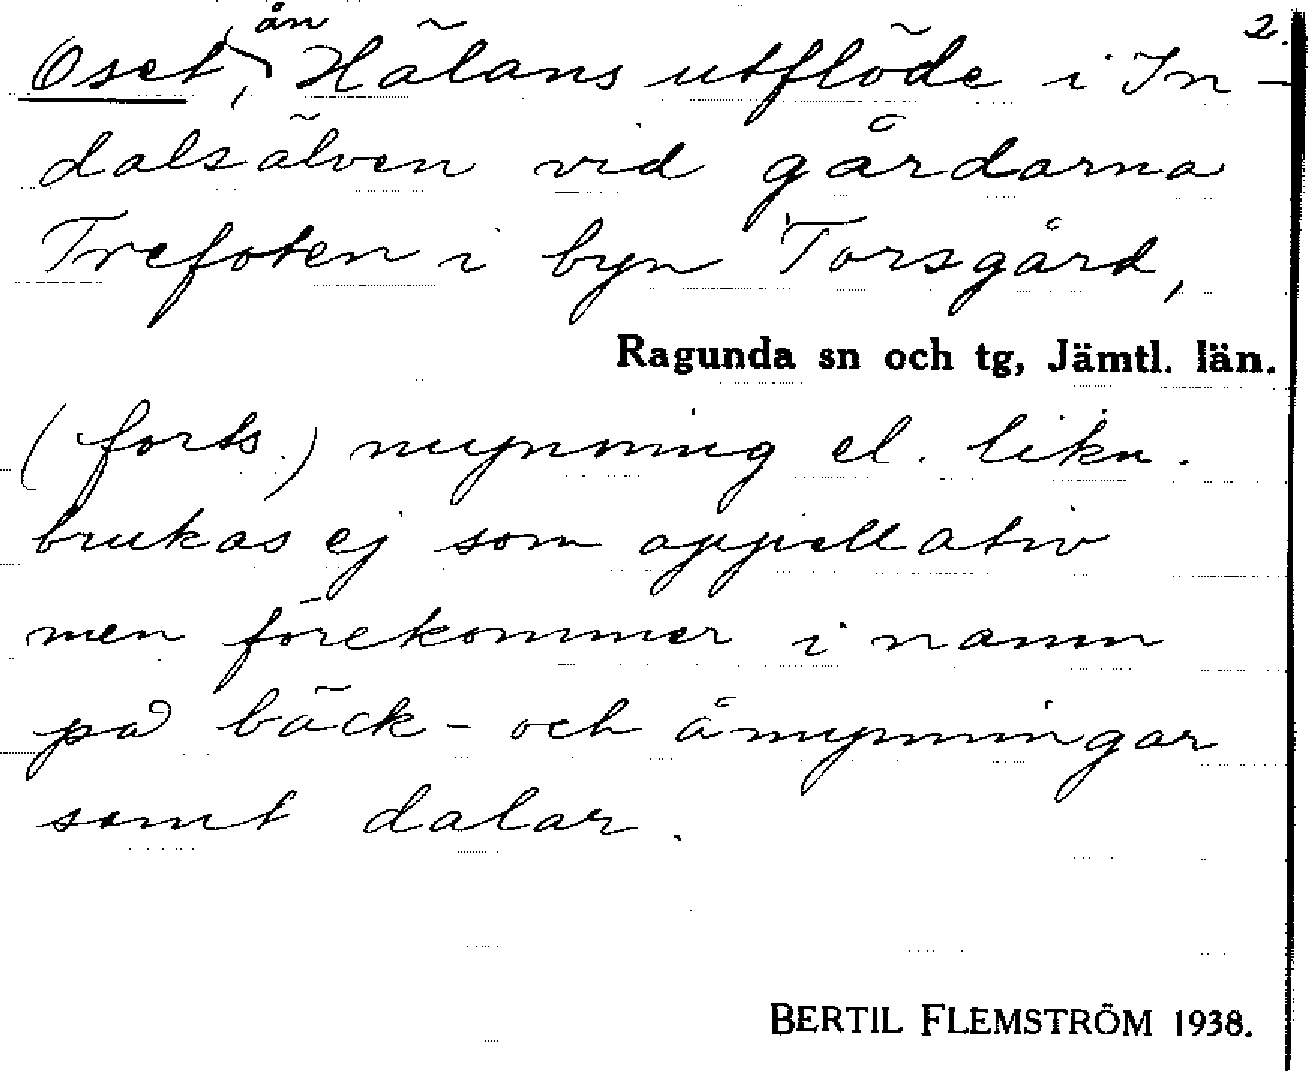 2.
Oset, ån Hälans utflöde i In-
dalsälven vid gårdarna
Trefoten i byn Torsgård,
Ragunda sn och tg, Jämtl. län.
(forts.) mynning el. likn.
brukas ej som appellativ
men förekommer i namn
på bäck- och åmynningar
samt dalar.
BERTIL FLEMSTRÖM 1938.